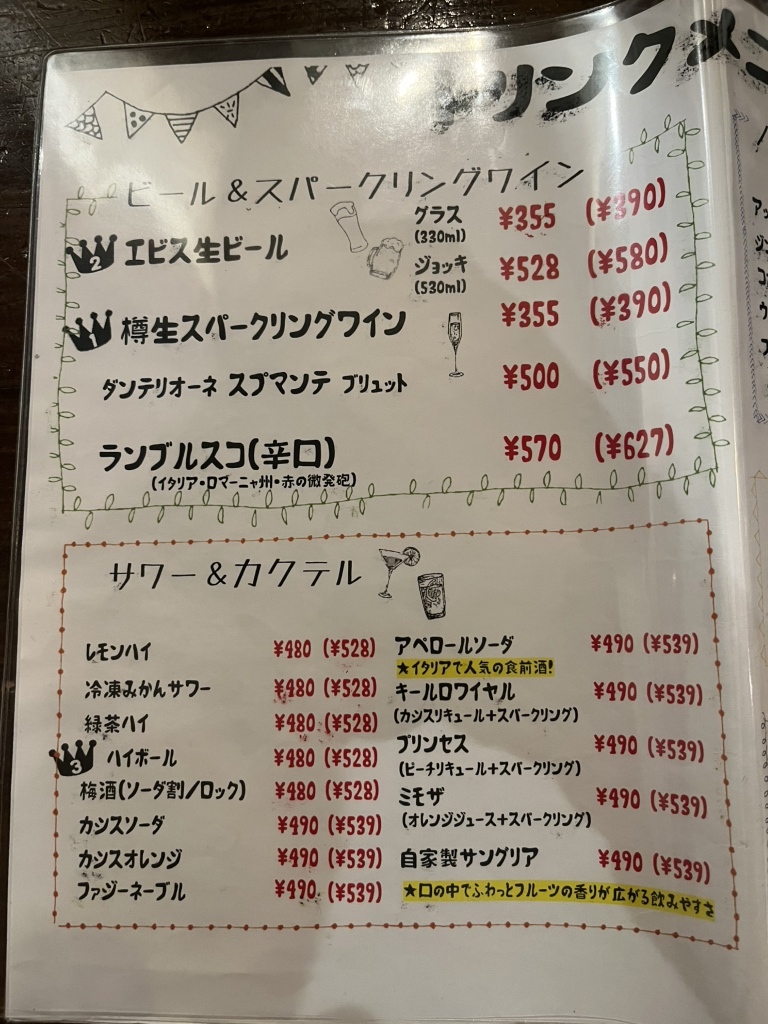 ドリンクメニ
ビール&スパークリングワイン
2 エビス生ビール
グラス ¥355 (¥390)
(330ml)
ジョッキ ¥528 (¥580)
(530ml)
1 樽生スパークリングワイン ¥355 (¥390)
ダンテリオーネ スプマンテ ブリュット ¥500 (¥550)
ランブルスコ(辛口) ¥570 (¥627)
(イタリア・ロマーニャ州・赤の微発砲)
サワー&カクテル
レモンハイ ¥480 (¥528)
冷凍みかんサワー ¥480 (¥528)
緑茶ハイ ¥480 (¥528)
3 ハイボール ¥480 (¥528)
梅酒(ソーダ割/ロック) ¥480 (¥528)
カシスソーダ ¥490 (¥539)
カシスオレンジ ¥490 (¥539)
ファジーネーブル ¥490 (¥539)
アペロールソーダ ¥490 (¥539)
★イタリアで人気の食前酒!
キールロワイヤル ¥490 (¥539)
(カシスリキュール+スパークリング)
プリンセス ¥490 (¥539)
(ピーチリキュール+スパークリング)
ミモザ ¥490 (¥539)
(オレンジジュース+スパークリング)
自家製サングリア ¥490 (¥539)
★口の中でふわっとフルーツの香りが広がる飲みやすさ